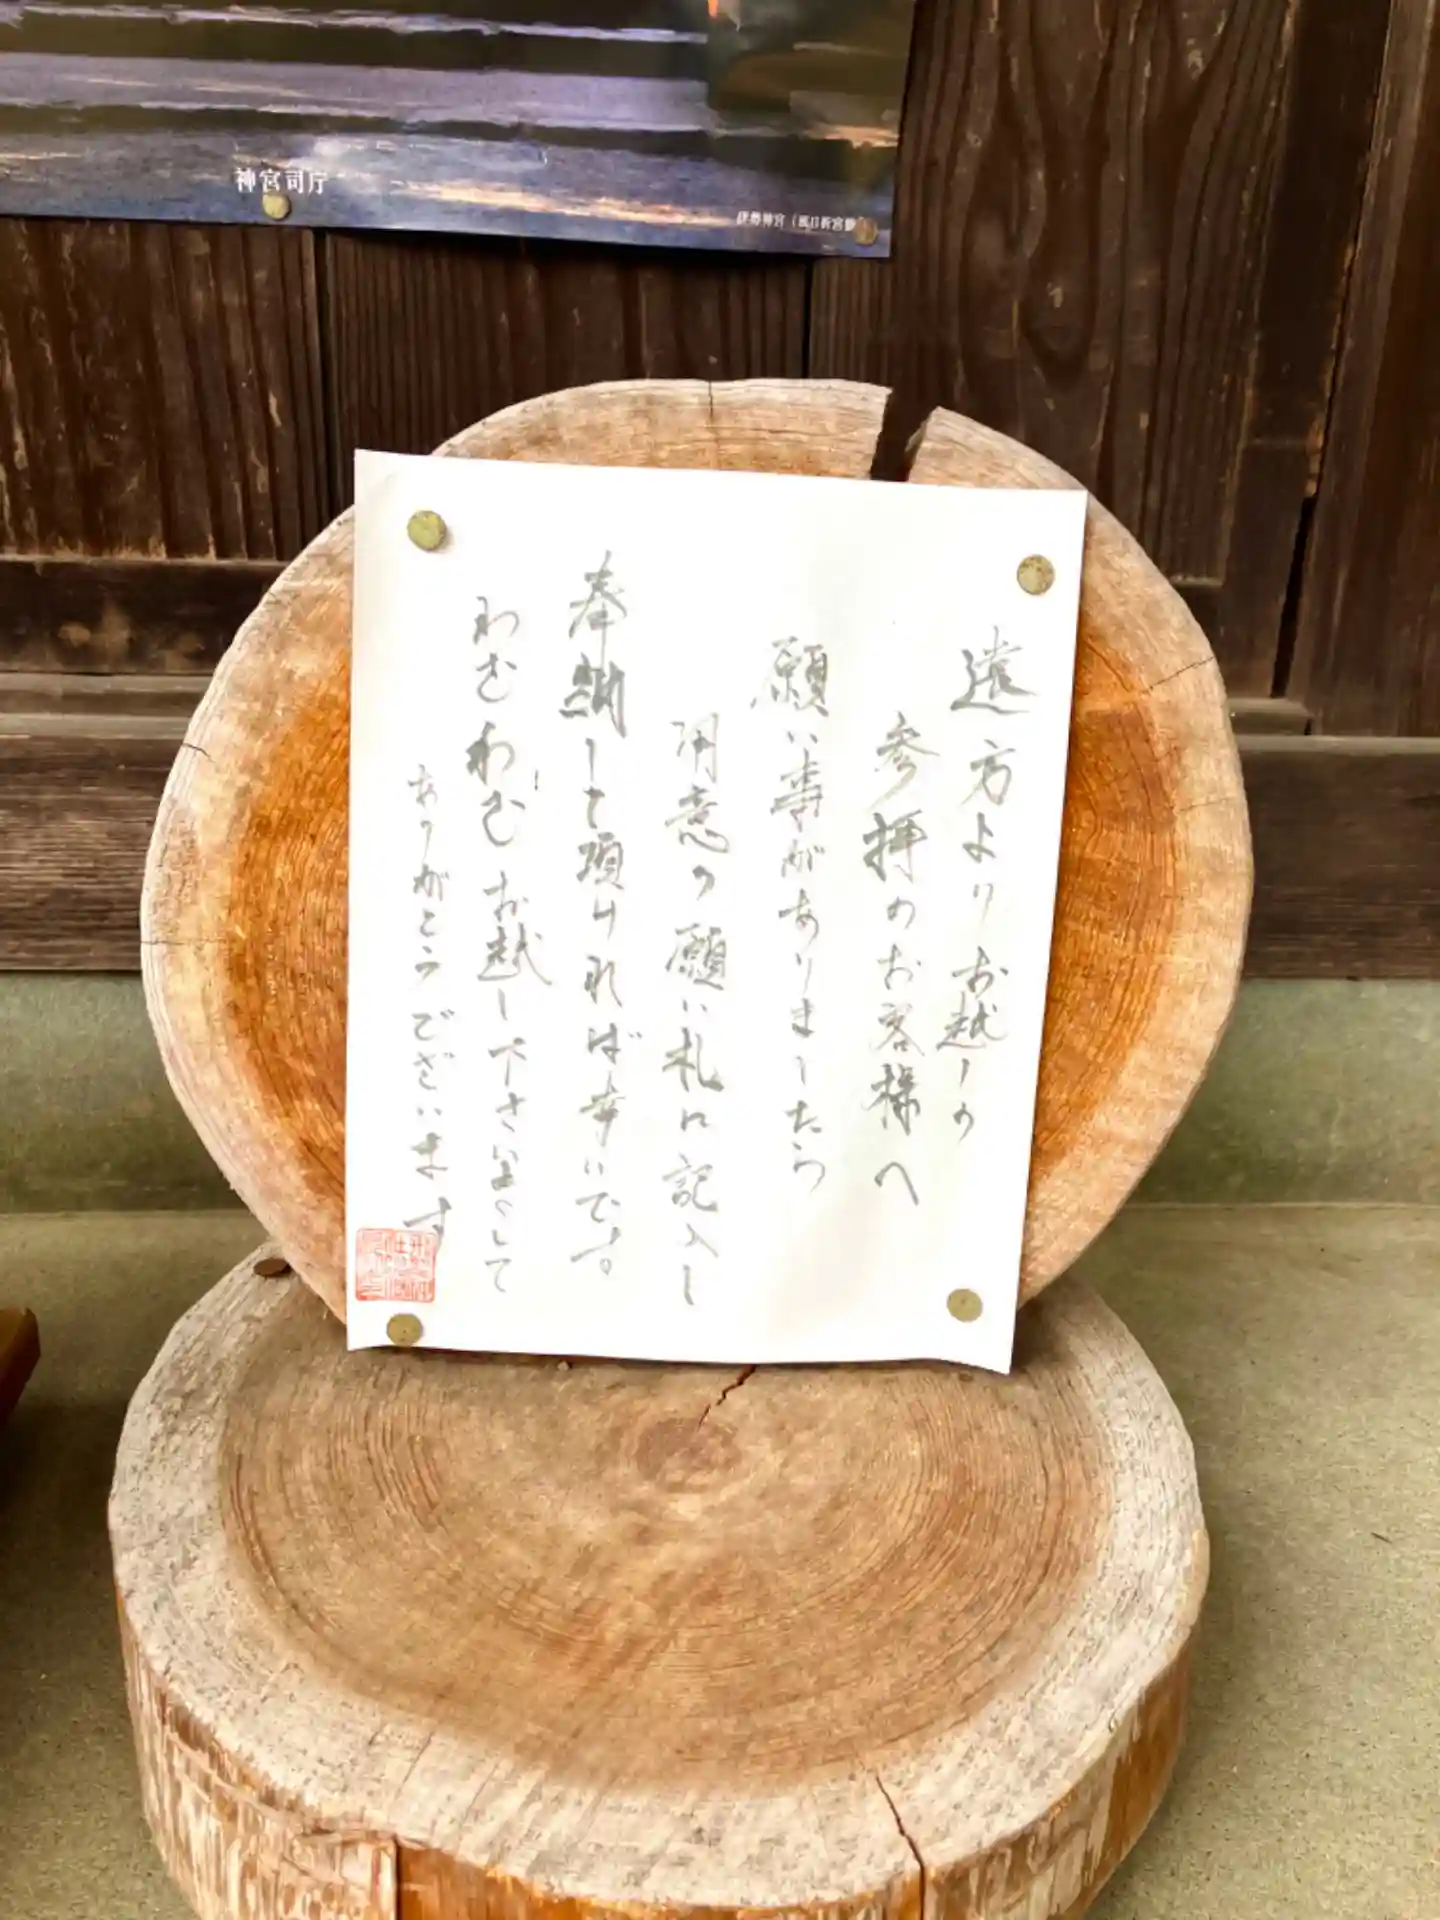 神宮司庁
遠方よりお越しの
参拝のお客様へ
願い事がありましたら
用意の願い札に記入し
奉納して頂ければ幸いです。
わむわむお越し下さいまして
ありがとうございます